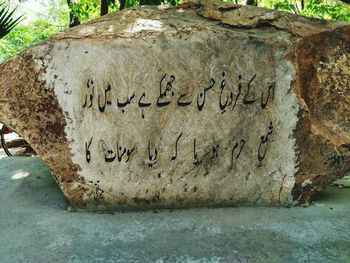 اس کے فروغِ حسن سے جھمکے ہے سب میں نور
شمع حرم ہو یا کہ دیا سومنات کا